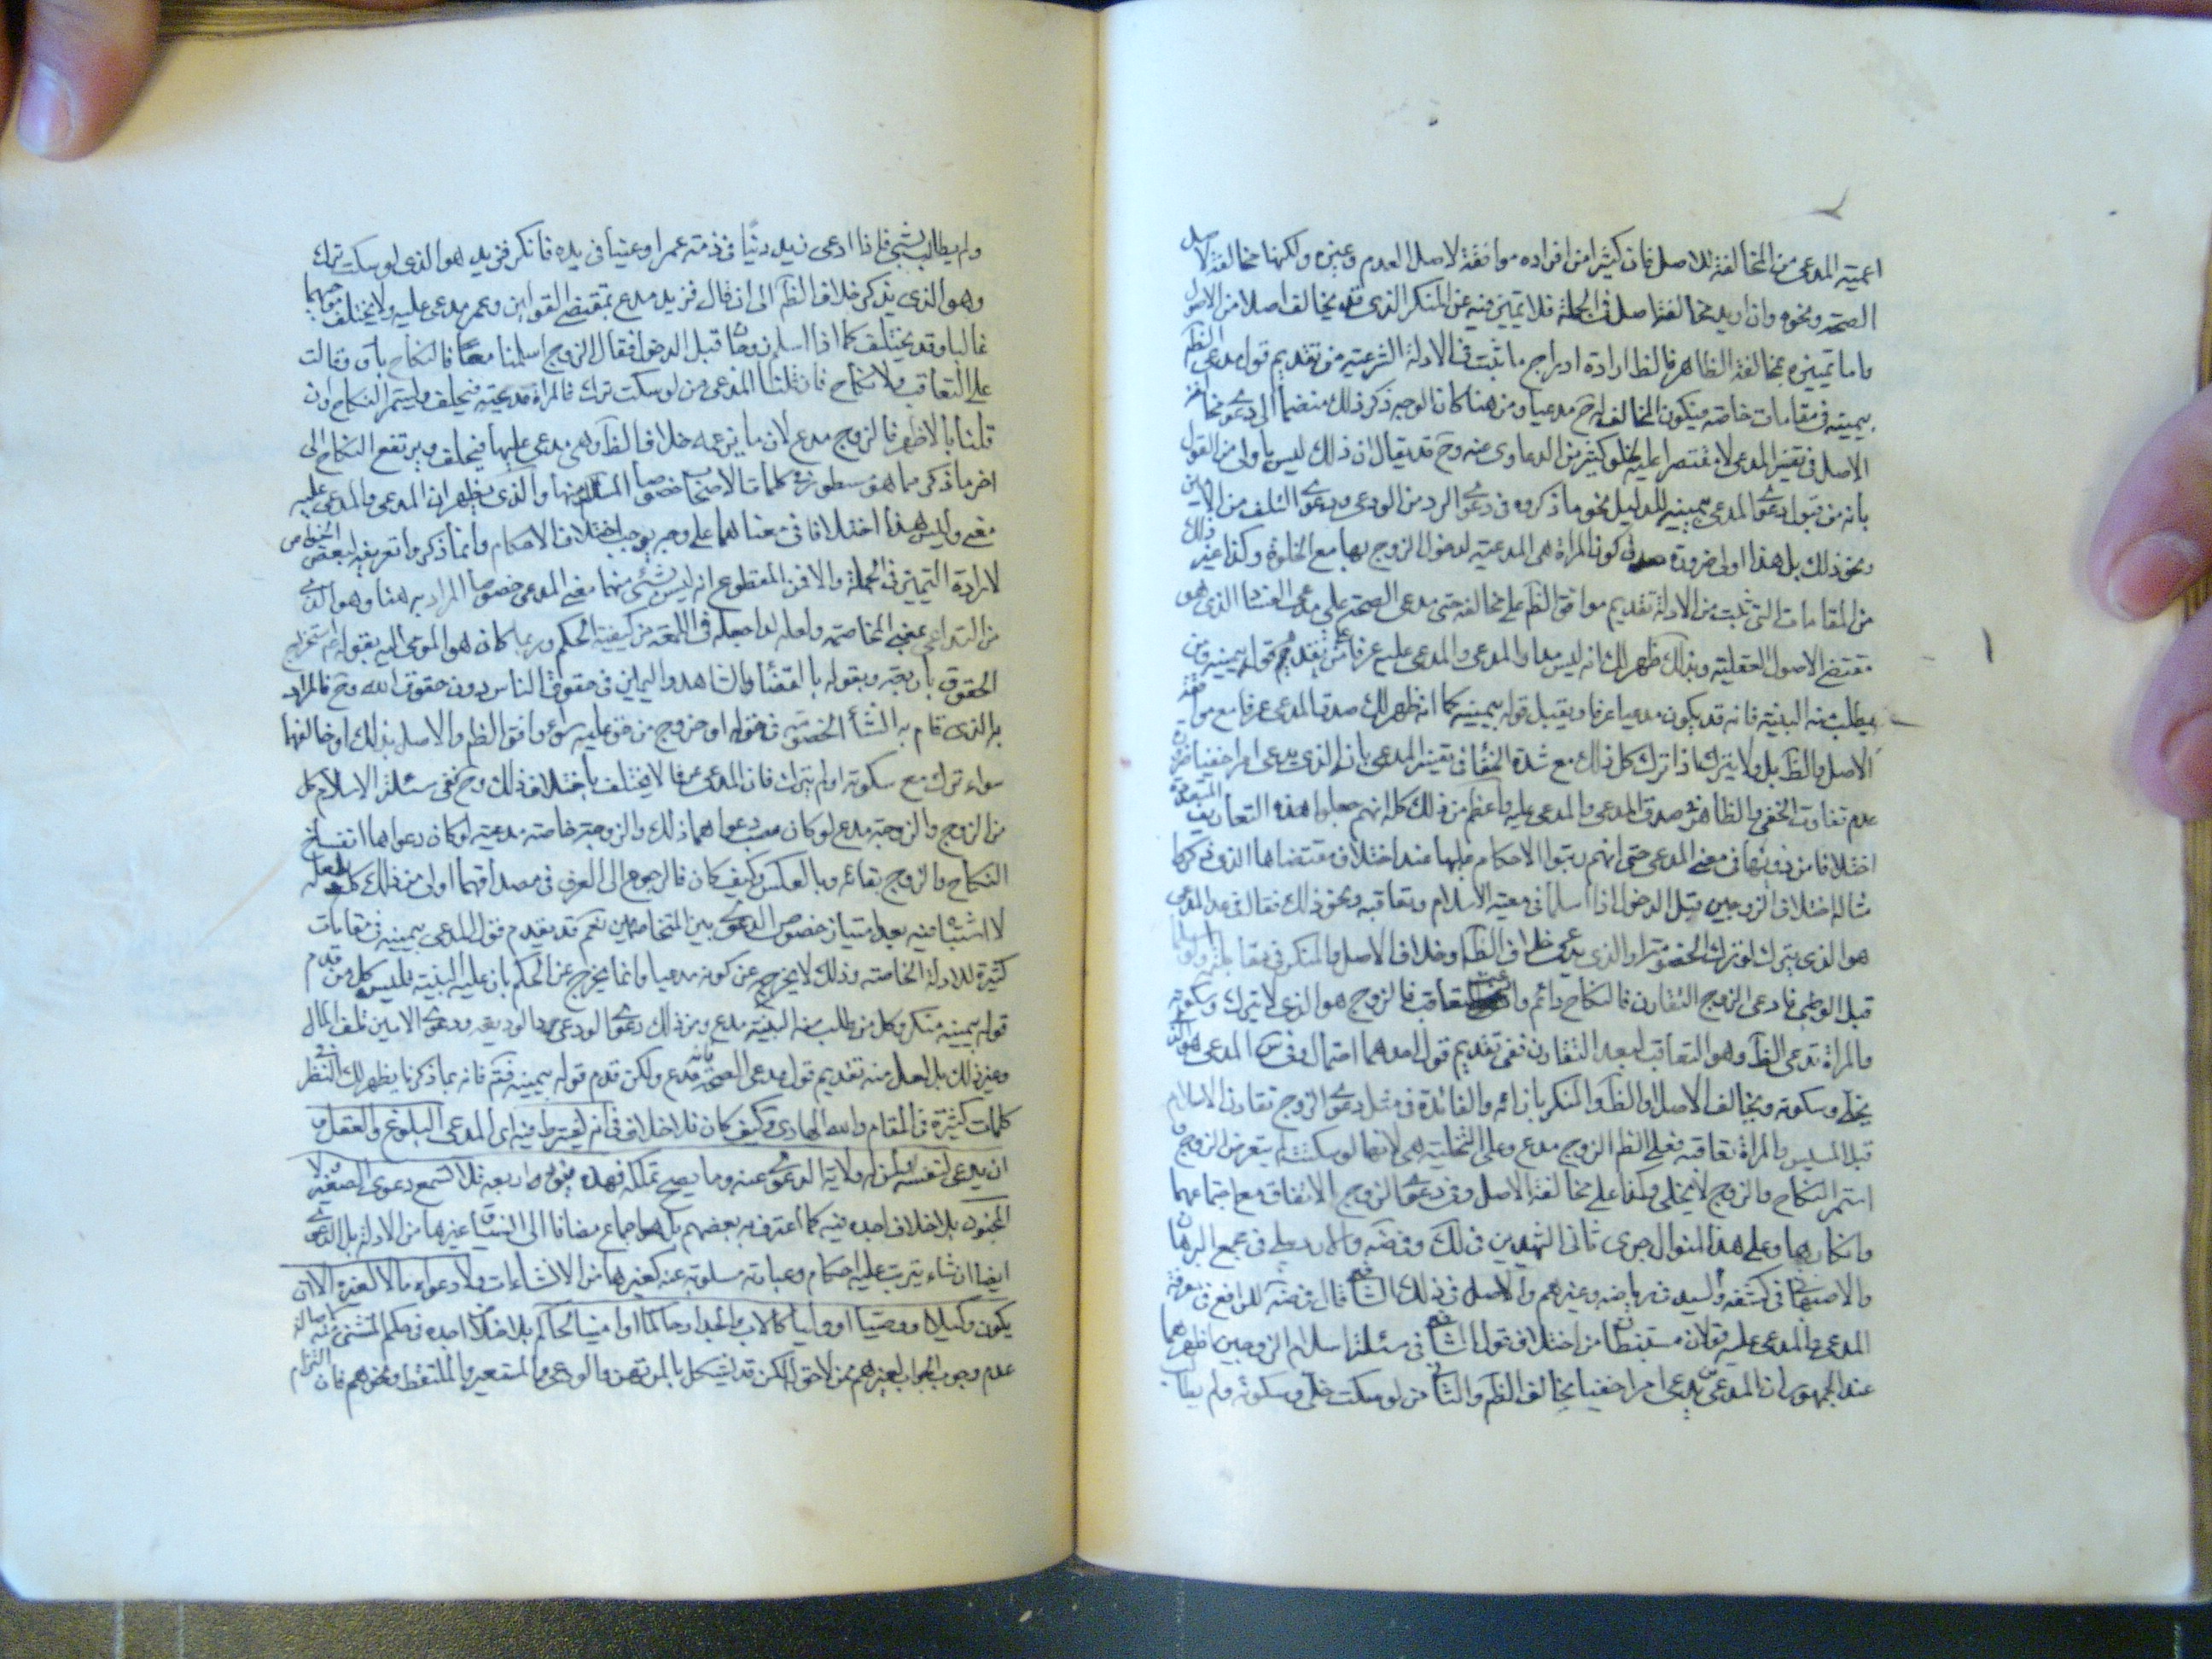 اعمية المدعى من المخالفة للاصل فان كثيرا من افراده موافقة لاصل العدم وغيره ولكنها مخالفة لاصل
الصحة ونحوه وان اريد مخالفة اصل في الجملة فلا تميز فيه عن المنكر الذي قد يخالف اصلا من الاصول
واما تميزه بمخالفة الظاهر فالظ ارادة ادراج ما ثبت في الادلة الشرعية من تقديم قول مدعى الظم
بيمينه في مقامات خاصة فيكون المخالف له ح مدعيا ومن هنا كان الوجه ذكر ذلك منضما الى دعوى مخالفة
الاصل في تفسير المدعى لا مقتصرا عليه لخلو كثير من الدعاوى عنه وح قد يقال ان ذلك ليس باولى من القول
بانه من قبول دعوى المدعى بيمينه للدليل نحو ما ذكروه في دعوى الرد من الودعى ودعوى التلف من الامين
ونحو ذلك بل هذا اولى ضرورة صدق كون المراة هي المدعية لدخول الزوج بها مع الخلوة وكذا غير ذلك
من المقامات التي ثبت من الادلة تقديم موافق الظم على مخالفه حتى مدعى الصحة على مدعى الفساد الذي هو
مقتضى الاصول العقلية وبذلك ظهر لك انه ليس مدار المدعى والمدعى عليه عرفا على تقديم قوله بيمينه ومن
يطلب منه البينة فانه قد يكون مدعيا عرفا ويقبل قوله بيمينه كما انه ظهر لك صدق المدعى عرفا مع موافقة
الاصل والظ بل ولا يترك اذا ترك كل ذلك مع شدة الخفاء في تفسير المدعى بانه الذي يدعى امرا خفيا ضرورة
عدم تفاوت الخفى والظاهر في صدق المدعى والمدعى عليه واعظم من ذلك كله انهم جعلوا هذه التعاريف المتعددة
اختلافا من ذويها في معنى المدعى حتى انهم رتبوا الاحكام عليها عند اختلاف مقتضاها الذي ذكروا
مثاله اختلاف الزوجين قبل الدخول اذا اسلما في معية الاسلام وتعاقبه ونحو ذلك فقال في عد المدعى
هو الذي يترك لو ترك الخصومة او الذي يدعى خلاف الظ او خلاف الاصل والمنكر في مقابلته ولو اسلما
قبل الوطى فادعى الزوج التقارن فالنكاح دائم وادعت التعاقب فالزوج هو الذي لا يترك وسكوته
والمراة تدعى الظ وهو التعاقب لبعد التقارن ففي تقديم قول احدهما احتمال وفي س المدعى هو الذي
يخلى وسكوته ويخالف الاصل او الظ والمنكر بازائه والفائدة في مثل دعوى الزوج تقارن الاسلام
قبل المسيس والمراة تعاقبه فعلى الظم الزوج مدع وعلى التخلية هي لانها لو سكتت لم يتعرض الزوج و
استمر النكاح والزوج لا يخلى وكذا على مخالفة الاصل وفي دعوى الزوج الانفاق مع اجتماعهما
وانكارها وعلى هذا المنوال جرى ثاني الشهيدين في لك وضه والاردبيلى في مجمع البرهان
والاصبهاني في كشفه والسيد في رياضه وغيرهم والاصل في ذلك الشافعي قال في ضه للرافع في معرفة
المدعى والمدعى عليه قولان مستنبطان من اختلاف قول الشافعي في مسئلة اسلام الزوجين اظهرهما
عند الجمهور ان المدعى من يدعى امرا خفيا يخالف الظم والثاني من لو سكت خلى وسكوته ولم يطالب
ولم يطالب بشئ فاذا ادعى زيد دينا في ذمة عمرو او عينا في يده فانكر فزيد هو الذي لو سكت ترك
وهو الذي يذكر خلاف الظ الى ان قال فزيد مدع بمقتضى القولين وعمر مدعى عليه ولا يختلف موجبهما
غالبا وقد يختلف كما اذا اسلم زوجان قبل الدخول فقال الزوج اسلمنا معا فالنكاح باق وقالت
على التعاقب ولا نكاح فان قلنا المدعى من لو سكت ترك فالمراة مدعية فيحلف ويستمر النكاح وان
قلنا بالاظهر فالزوج مدع لان ما يزعمه خلاف الظ وهي مدعى عليها فيحلف ويرتفع النكاح الى
اخر ما ذكر مما هو مسطور في كلمات الاصحاب خصوصا المسالك منها والذي يظهر ان المدعى والمدعى عليه
معنى وليس هذا اختلافا في معناهما على وجه يوجب اختلاف الاحكام وانما ذكروا تعريفه لبعض الخواص
لارادة التميز في الجملة والا فمن المقطوع انه ليس بشئ منها معنى المدعى خصوصا المراد به هنا وهو الذي
من التداعى بمعنى المخاصمة ولعله لذا جعله في اللمعة من كيفية الحكم وربما كان هو المومى اليه بقوله ثم استخراج
الحقوق باربعة وبقوله بالقضاء والشاهد واليمين في حقوق الناس دون حقوق الله وح فالمراد
به الذي قام به انشاء الخصومة في حق له او خروج من حق عليه سواء وافق الظم والاصل بذلك او خالفهما
سواء ترك مع سكوته او لم يترك فان المدعى عرفا لا يختلف باختلاف ذلك وح ففي مسئلة الاسلام كل
من الزوج والزوجة مدع لو كان مصب دعواهما ذلك والزوجة خاصة مدعية لو كان دعواها انفساخ
النكاح والزوج بقائه وبالعكس وكيف كان فالرجوع الى العرف في مصداقهما اولى من ذلك كله ولعله
لا اشتباه فيه بعد امتياز خصوص الدعوى بين المتخاصمين نعم قد يقدم قول المدعى بيمينه في مقامات
كثيرة للادلة الخاصة وذلك لا يخرجه عن كونه مدعيا وانما يخرج عن الحكم بان عليه البينة فليس كل من قدم
قوله بيمينه منكر وكل من طلب منه البينة مدع ومن ذلك دعوى الودعى رد الوديعة ودعوى الامين تلف المال
وغير ذلك بل لعل منه تقديم قول مدعى الصحة فانه مدع ولكن قدم قوله بيمينه فتم فانه بما ذكرنا يظهر لك النظر في
كلمات كثيرة في المقام والله الهادى وكيف كان فلا خلاف في انه يشترط فيه اى المدعى البلوغ والعقل و
ان يدعى لنفسه او لمن له ولاية الدعوى عنه وما يصح تملكه فهذه قيود اربعة فلا تسمع دعوى الصغير ولا
المجنون بلا خلاف اجده فيه كما اعترف به بعضهم بل هو اجماع مضافا الى انسياق غيرهما من الادلة بل الدعوى
ايضا انشاء يترتب عليه احكام وعبارته مسلوبة عنه كغيرها من الانشاءات ولا دعواه مالا لغيره الا ان
يكون وكيلا او وصيا او وليا كالاب والجد او حاكما او امينا لحاكم بلا خلاف اجده في حكم المستثنى منه لاصالة
عدم وجوب الجواب لغيرهم ممن لا حق له لكن قد يشكل بالمرتهن والودعى والمستعير والملتقط ونحوهم فان التزام